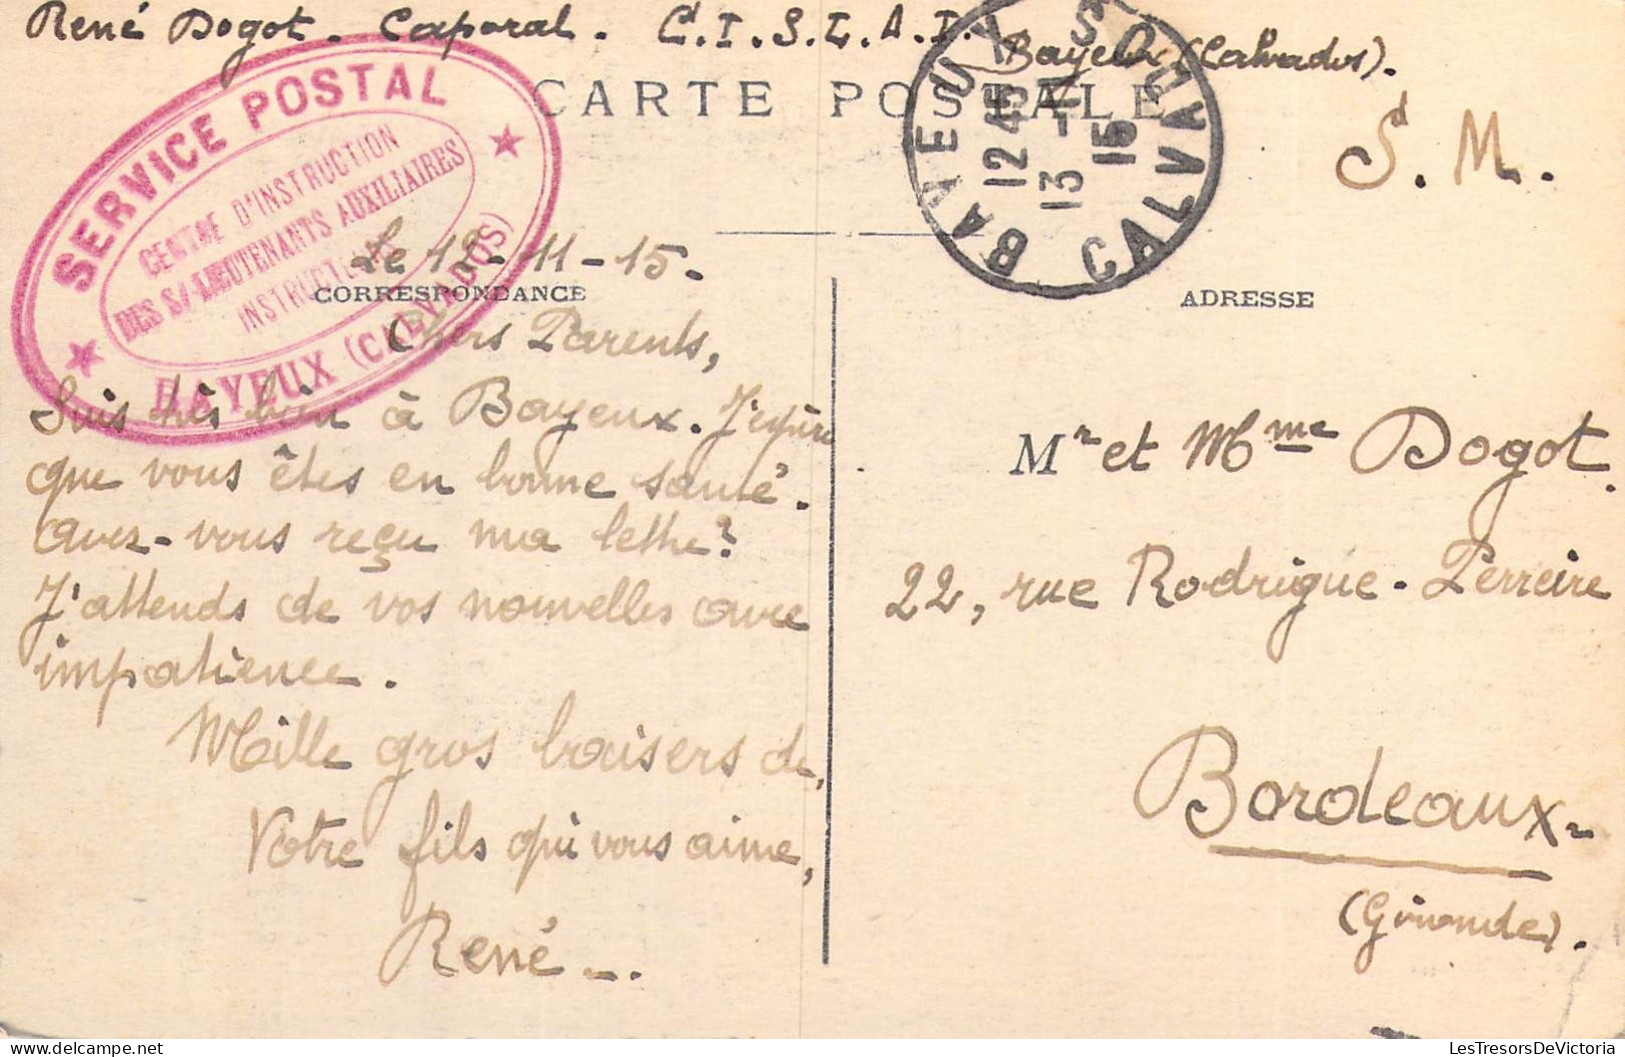 René Dogot. Caporal. C.I.S.L.A.I. Bayeux (Calvados).
CARTE POSTALE
S. M.
SERVICE POSTAL
CENTRE D'INSTRUCTION
DES S/-LIEUTENANTS AUXILIAIRES
BAYEUX (CALVADOS)
BAYEUX
12 45
13 -11
15
CALVADOS
Le 12-11-15.
CORRESPONDANCE
Chers Parents,
Suis très bien à Bayeux. J'espère
que vous êtes en bonne santé.
avez-vous reçu ma lettre?
J'attends de vos nouvelles avec
impatience.
Mille gros baisers de,
Votre fils qui vous aime,
René -.
ADRESSE
Mr et Mme Dogot.
22, rue Rodrigue-Perreire
Bordeaux-
(Gironde).
LesTresorsDeVictoria